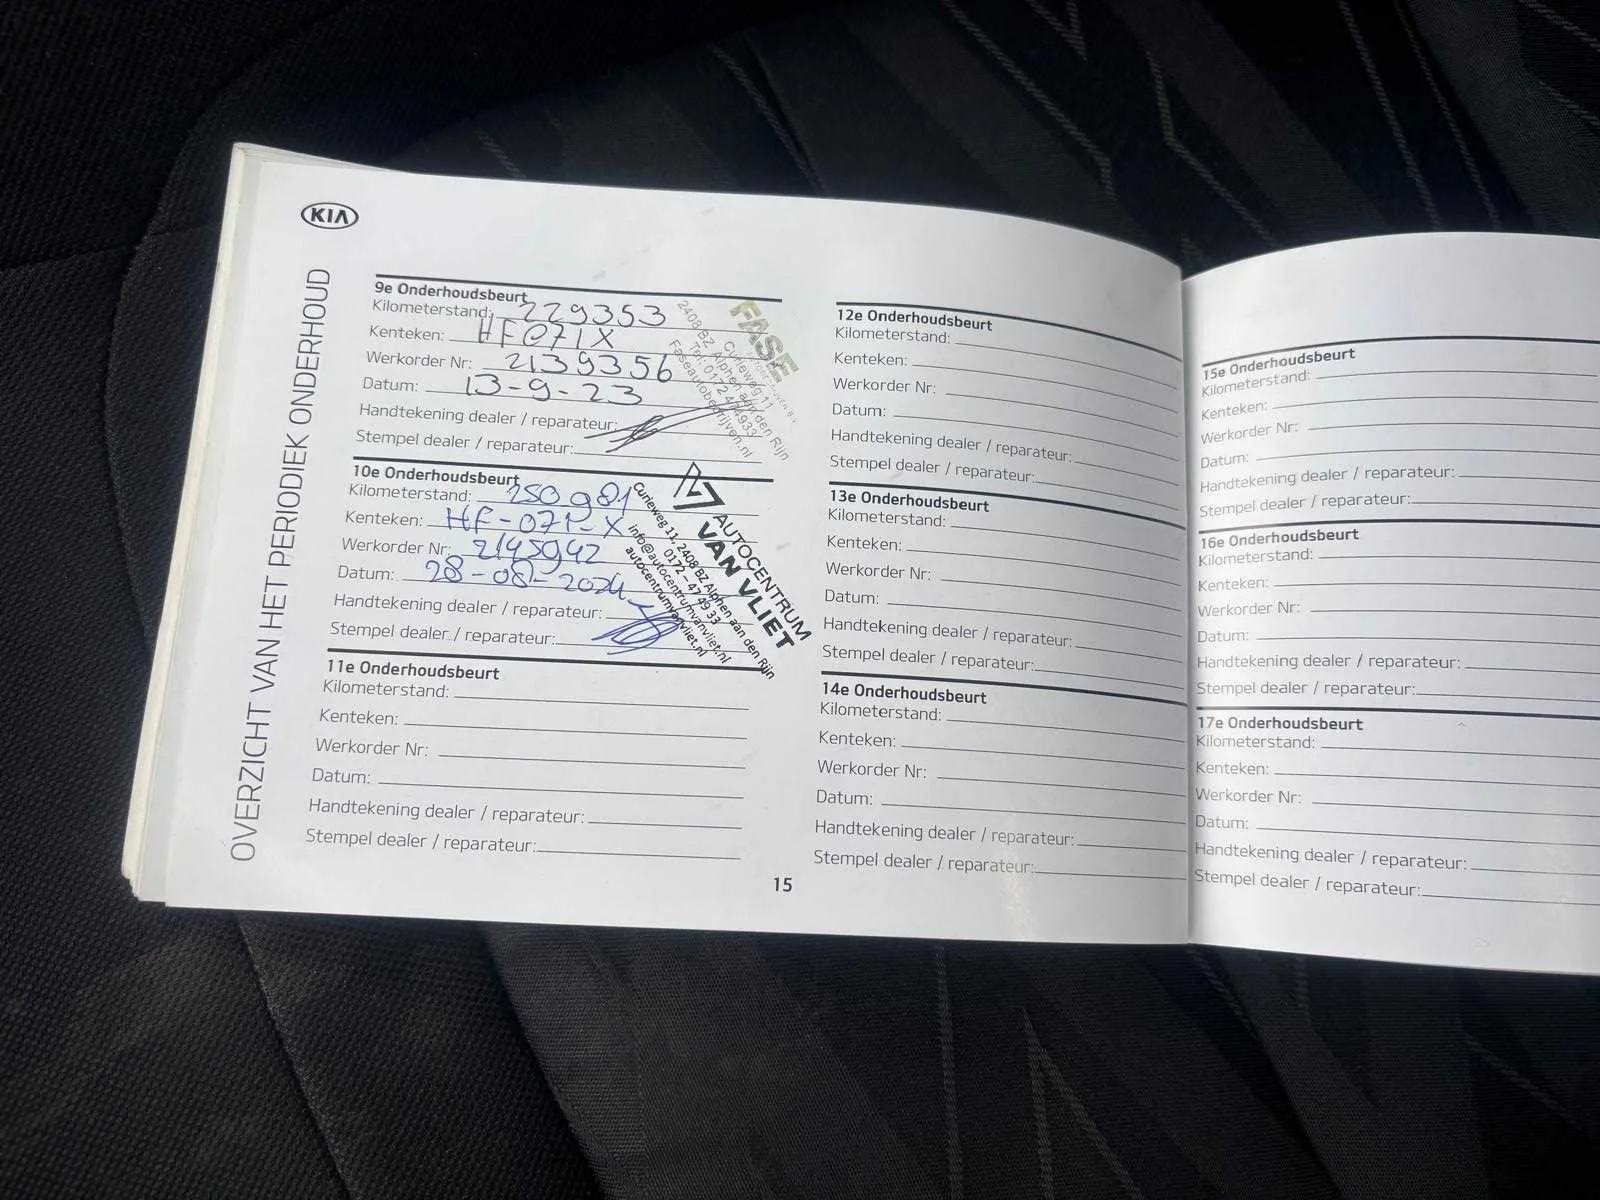 KIA
OVERZICHT VAN HET PERIODIEK ONDERHOUD
9e Onderhoudsbeurt
Kilometerstand: 229353
Kenteken: HF071X
Werkorder Nr: 2139356
Datum: 13-9-23
Handtekening dealer / reparateur:
Stempel dealer / reparateur:
FASE
Curieweg 11
2408 BZ Alphen aan den Rijn
Tel: 0172 474933
Faseautobedrijven.nl
10e Onderhoudsbeurt
Kilometerstand: 250981
Kenteken: HF-071-X
Werkorder Nr: 2145942
Datum: 28-08-2024
Handtekening dealer / reparateur:
Stempel dealer / reparateur:
AUTOCENTRUM
VAN VLIET
Curieweg 11, 2408 BZ Alphen aan den Rijn
0172 - 47 49 33
info@autocentrumvanvliet.nl
autocentrumvanvliet.nl
11e Onderhoudsbeurt
Kilometerstand:
Kenteken:
Werkorder Nr:
Datum:
Handtekening dealer / reparateur:
Stempel dealer / reparateur:
12e Onderhoudsbeurt
Kilometerstand:
Kenteken:
Werkorder Nr:
Datum:
Handtekening dealer / reparateur:
Stempel dealer / reparateur:
13e Onderhoudsbeurt
Kilometerstand:
Kenteken:
Werkorder Nr:
Datum:
Handtekening dealer / reparateur:
Stempel dealer / reparateur:
14e Onderhoudsbeurt
Kilometerstand:
Kenteken:
Werkorder Nr:
Datum:
Handtekening dealer / reparateur:
Stempel dealer / reparateur:
15
15e Onderhoudsbeurt
Kilometerstand:
Kenteken:
Werkorder Nr:
Datum:
Handtekening dealer / reparateur:
Stempel dealer / reparateur:
16e Onderhoudsbeurt
Kilometerstand:
Kenteken:
Werkorder Nr:
Datum:
Handtekening dealer / reparateur:
Stempel dealer / reparateur:
17e Onderhoudsbeurt
Kilometerstand:
Kenteken:
Werkorder Nr:
Datum:
Handtekening dealer / reparateur:
Stempel dealer / reparateur: